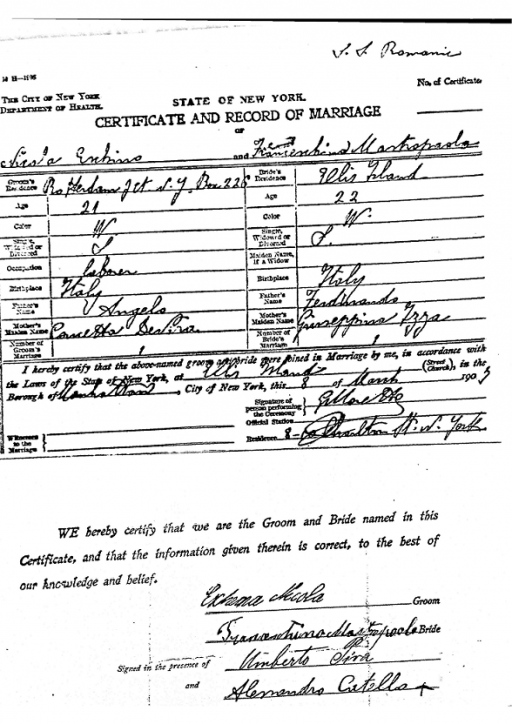 S. S. Romanic
THE CITY OF NEW YORK
DEPARTMENT OF HEALTH.
STATE OF NEW YORK.
No. of Certificate
CERTIFICATE AND RECORD OF MARRIAGE
OF
and Mastropaolo
Groom's Residence Rotterdam Jct N. Y. Box 225
Bride's Residence Ellis Island
Age 21
Age 22
Color W.
Color W.
Single, Widowed or Divorced S
Single, Widowed or Divorced S.
Occupation laborer
Maiden Name, if a Widow
Birthplace Italy
Birthplace Italy
Father's Name Angelo
Father's Name Ferdinando
Mother's Maiden Name
Mother's Maiden Name Giuseppina Izza
Number of Groom's Marriage 1
Number of Bride's Marriage 1
I hereby certify that the above-named groom and bride were joined in Marriage by me, in accordance with
the Laws of the State of New York, at Ellis Island (Street / Church), in the
Borough of Manhattan, City of New York, this 8 of March 190
Signature of person performing the Ceremony
Official Station
Witnesses to the Marriage
Residence 8- Charlton St. N. York
WE hereby certify that we are the Groom and Bride named in this
Certificate, and that the information given therein is correct, to the best of
our knowledge and belief.
Nicola Groom
Mastropaolo Bride
Signed in the presence of Umberto
and Alessandro Catella +